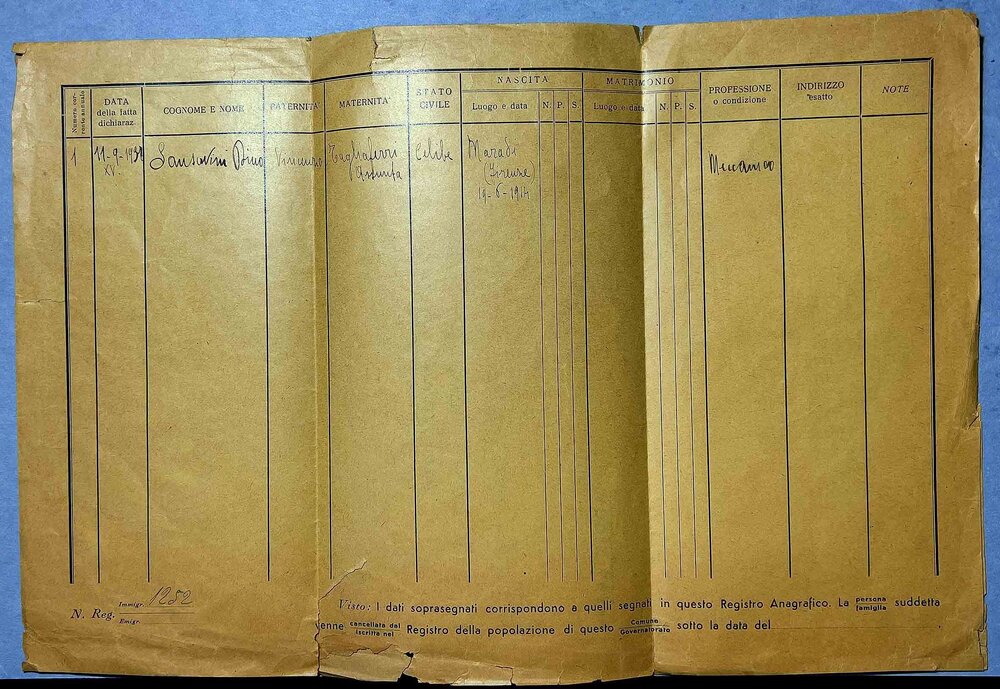 Numero cor-
rente annuale
DATA
della fatta
dichiaraz.
COGNOME E NOME
PATERNITA'
MATERNITA'
STATO
CIVILE
NASCITA
Luogo e data
N. P. S.
MATRIMONIO
Luogo e data
N. P. S.
PROFESSIONE
o condizione
INDIRIZZO
esatto
NOTE
1
11-9-1937
XV.
Sansavini Dino
Vincenzo
Tagliaferri
Assunta
Celibe
Maradi
(Firenze)
19-6-1914
Meccanico
N. Reg. Immigr. 1252
Emigr.
Visto: I dati soprasegnati corrispondono a quelli segnati in questo Registro Anagrafico. La persona
famiglia suddetta
enne cancellata dal
iscritta nel Registro della popolazione di questo Comune
Governatorato sotto la data del